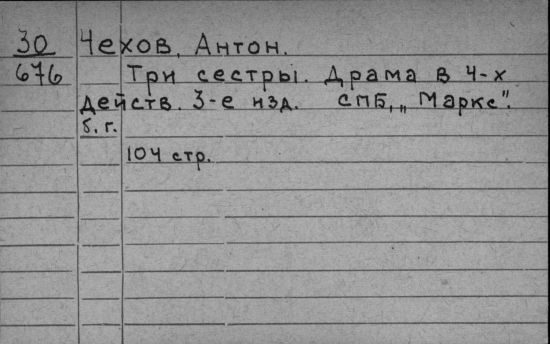 30 Чехов, Антон.
676 Три сестры. Драма в 4-х
действ. 3-е изд. СПБ, „Маркс".
б. г.
104 стр.